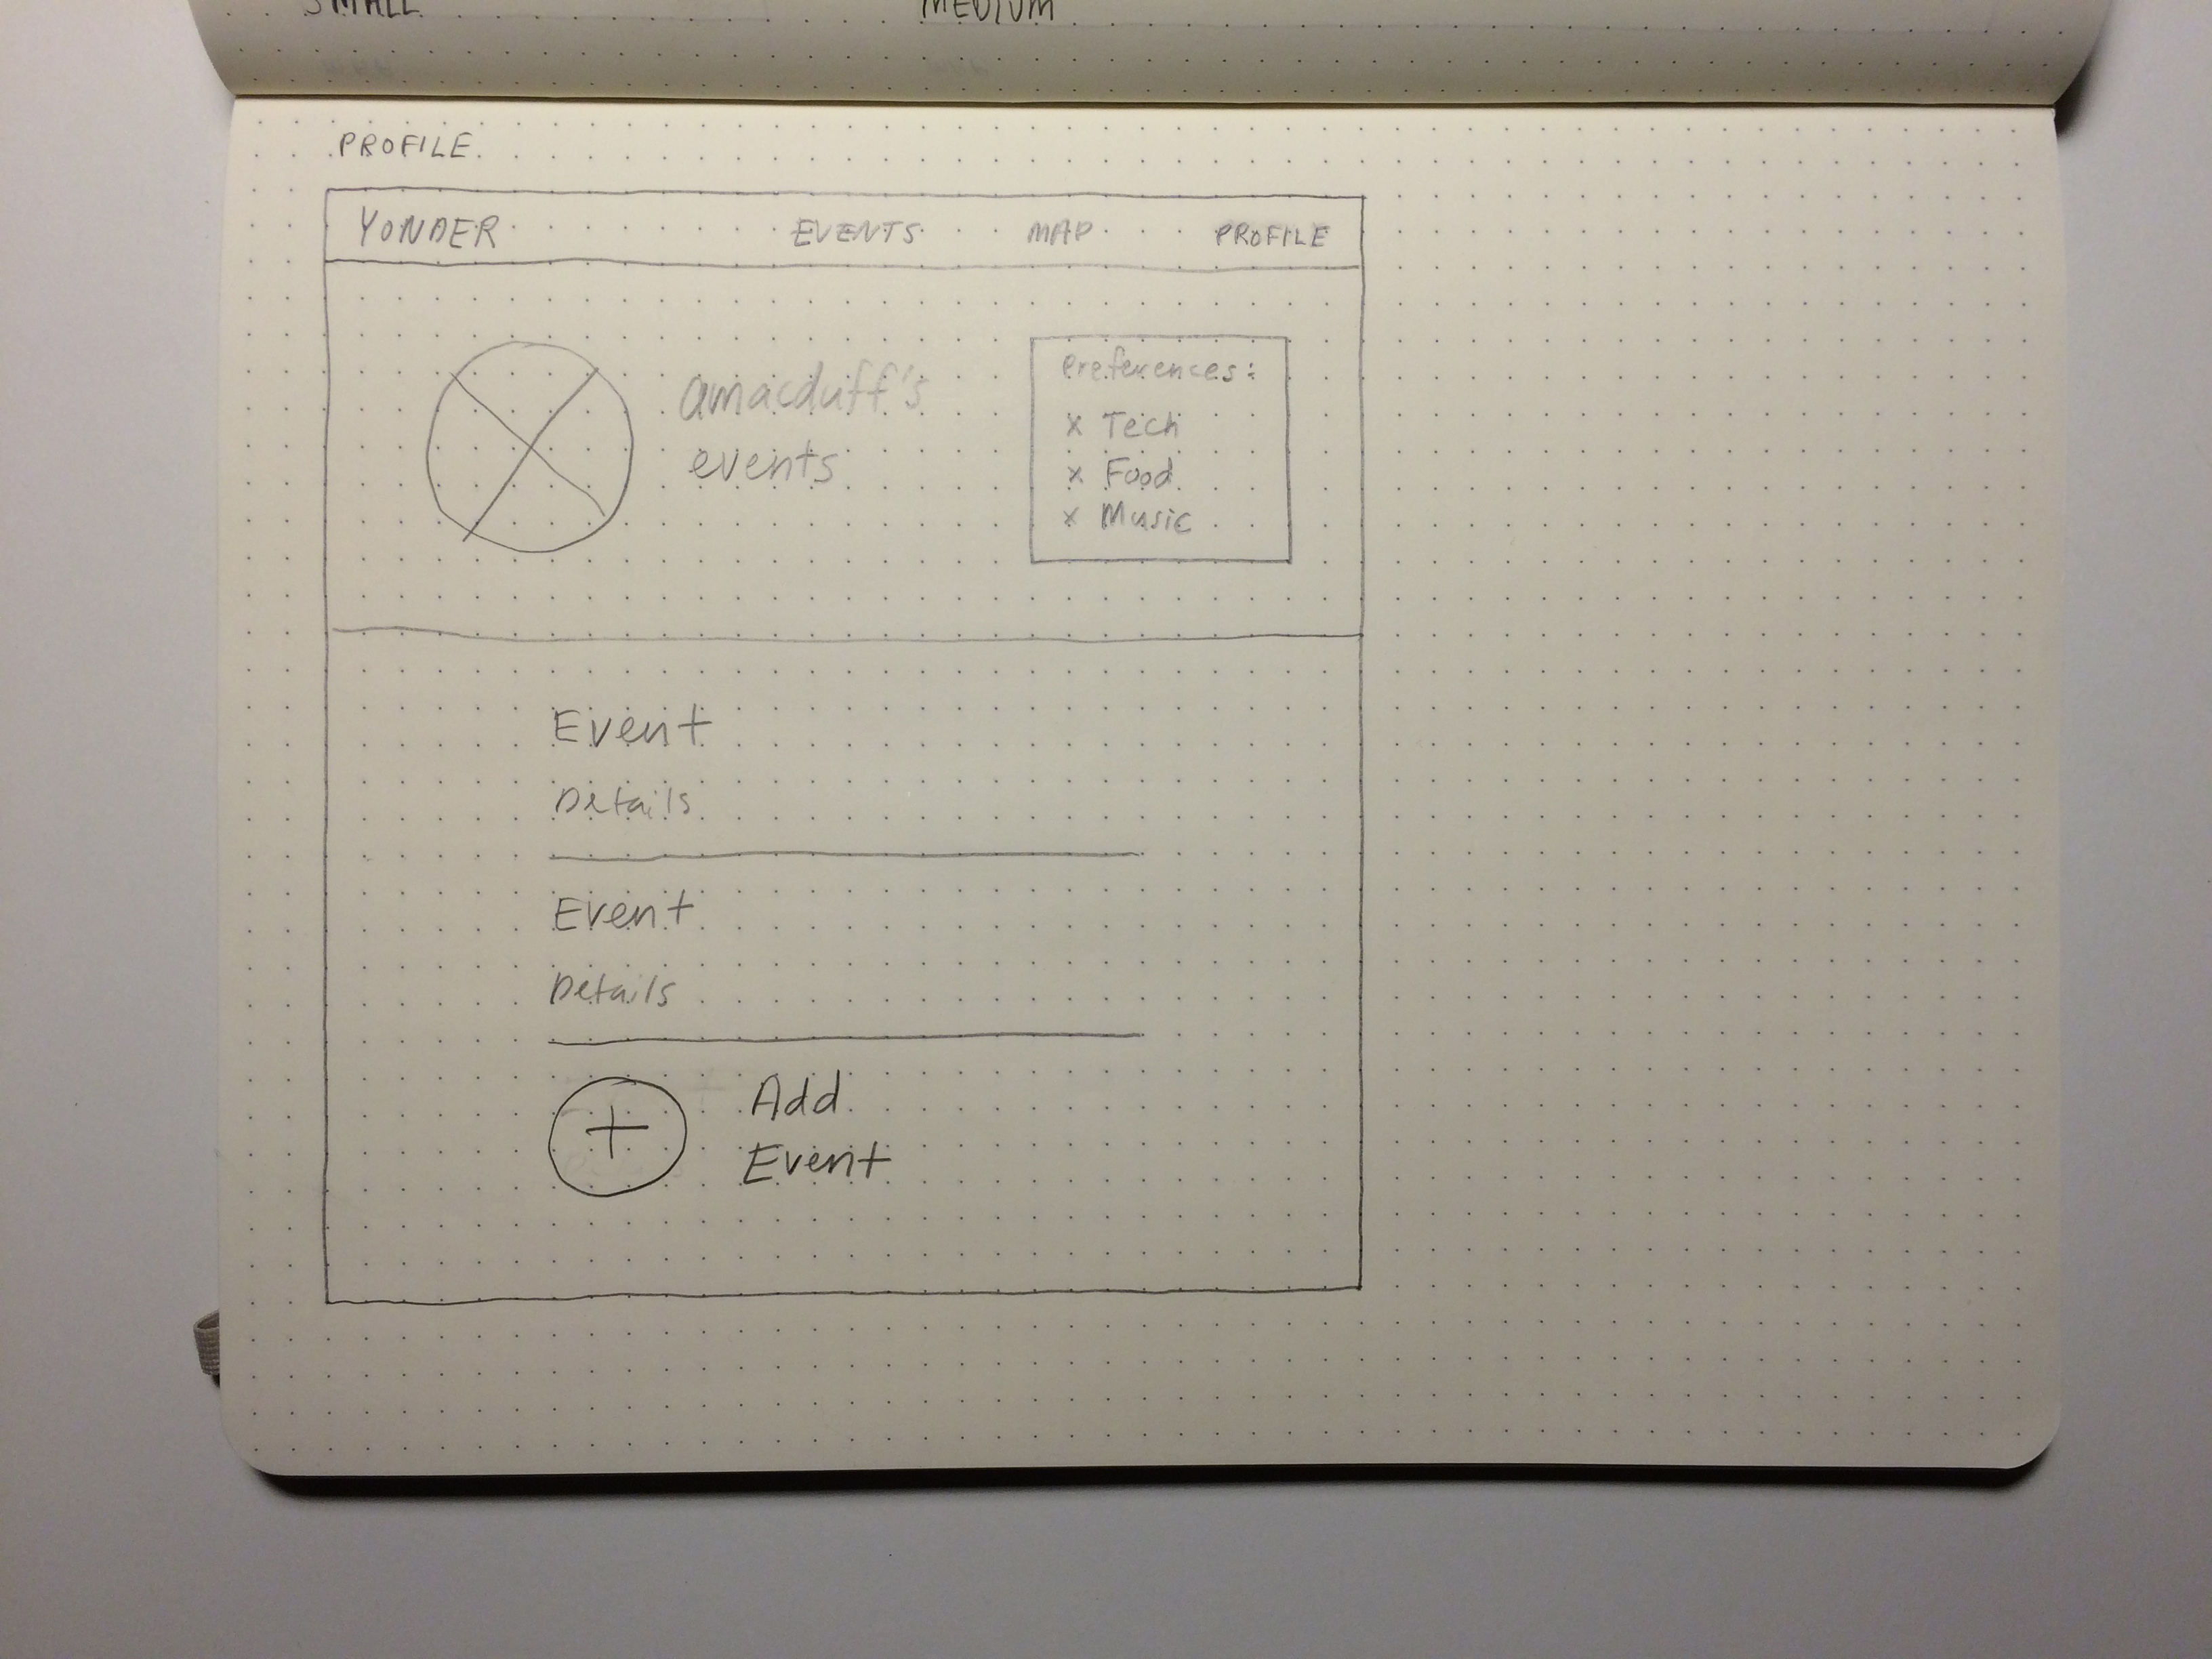 SMALL MEDIUM
PROFILE
YONDER EVENTS MAP PROFILE
amacduff's
events
Preferences:
x Tech
x Food
x Music
Event
Details
Event
Details
Add
Event